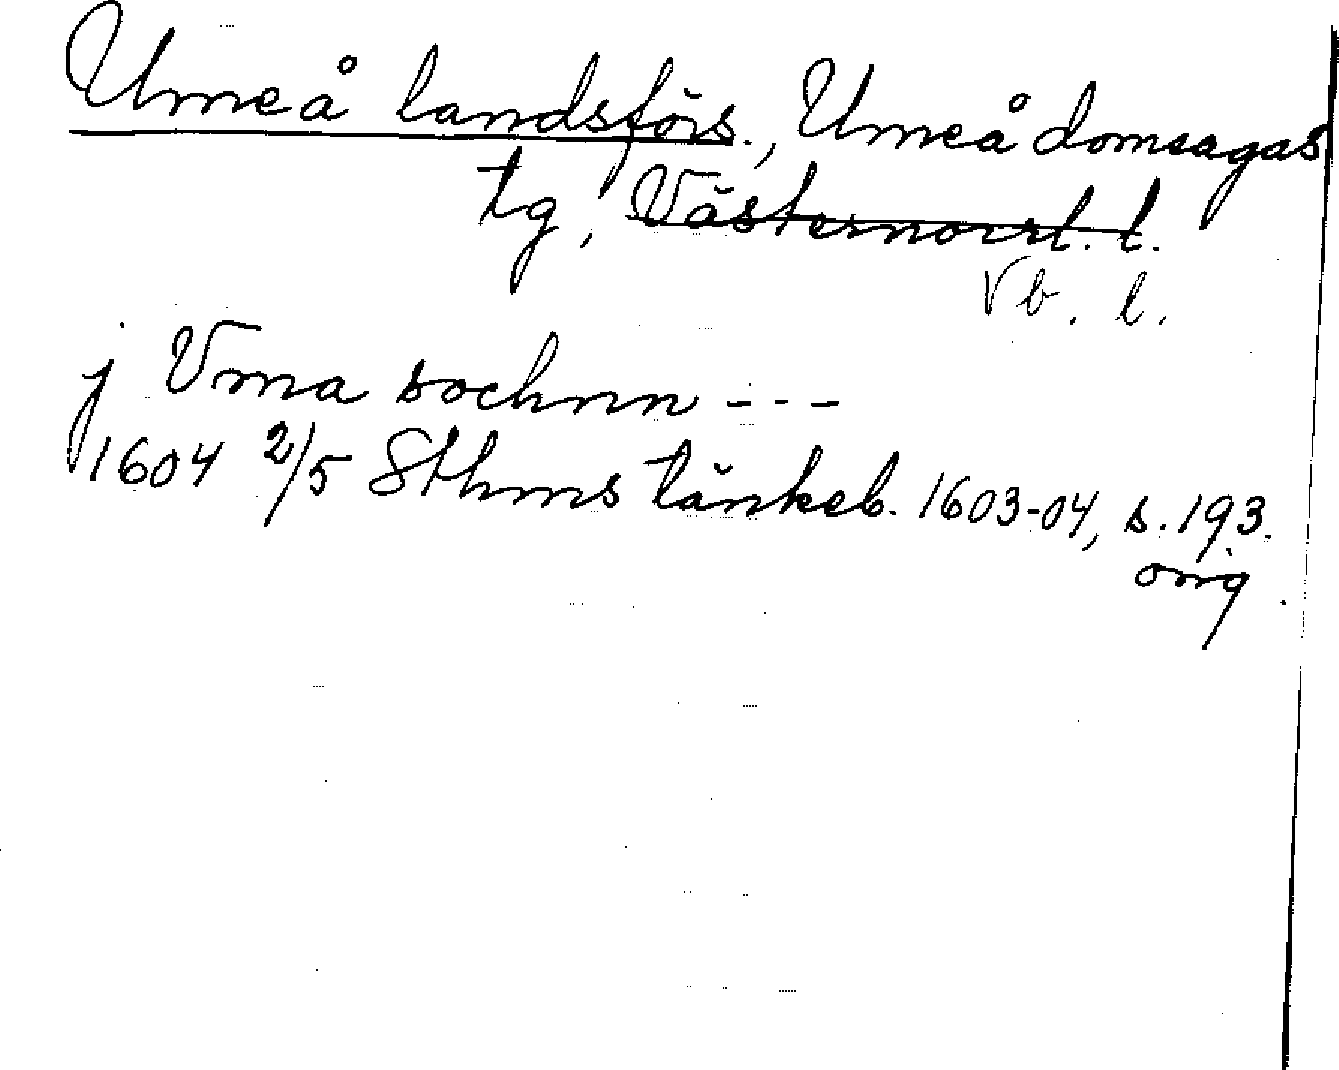 Umeå landsförs., Umeå domsagas
tg, Västernorrl. l.
Vb. l.
j Vma sochnn ---
1604 2/5 Sthms tänkeb. 1603-04, s. 193.
orig.